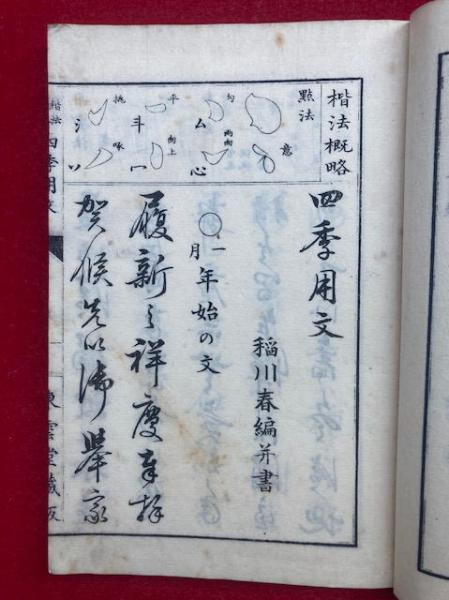 楷法概略
點法
意
勾
両向 ム 心
平 斗
向上
挑
啄
四季用文
稲川春編并書
〇一月 年始の文
履新之祥慶奉拝
賀候先以御挙家
楷法 四季用文
東雲堂蔵版